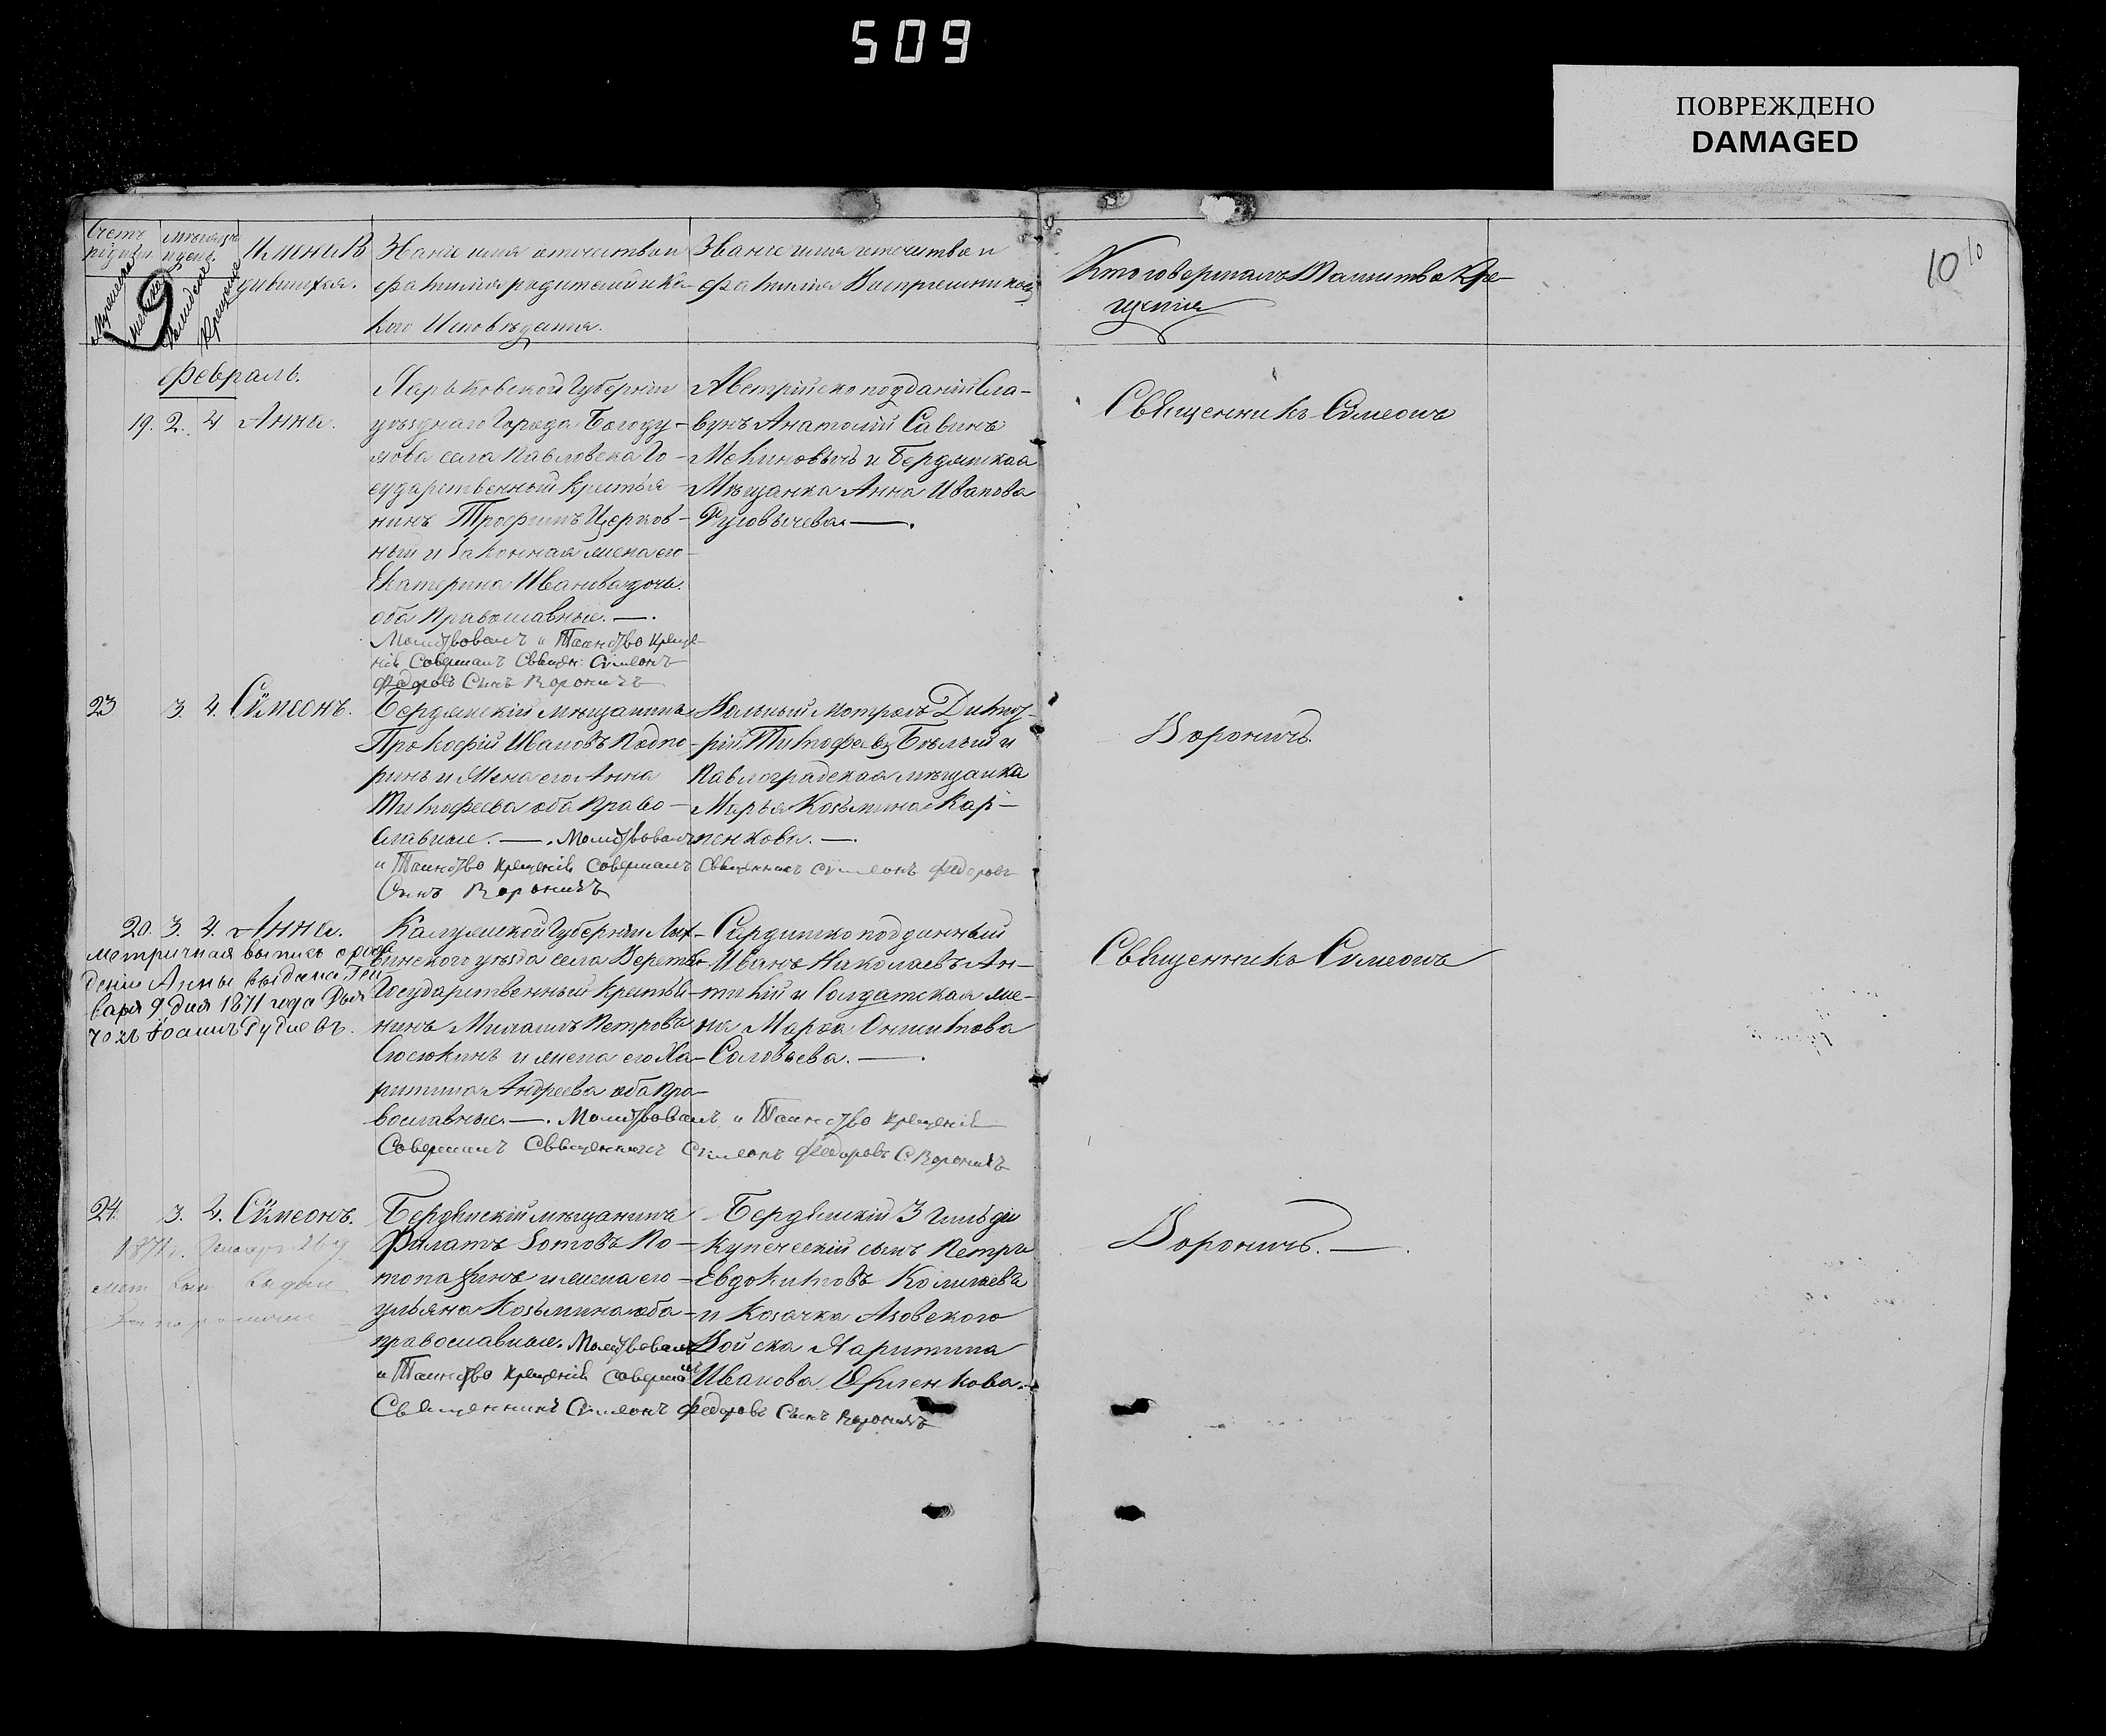 509
ПОВРЕЖДЕНО
DAMAGED
10
10
9
Счетъ
Имена Ро
Званіе имя отчество и
Званіе имя отчество и
Кто совершалъ Таинство Кре-
фамилія родителей и ка-
фамилія Воспріемниковъ
щенія
кого Исповѣданія.
Февраль.
19. 2. 4 Анна.
Харьковской Губерніи
уѣзднаго Города Богоду-
хова села Павловска Го-
сударственный Крестья-
нинъ Трофимъ Церков-
ный и Законная жена его
Екатерина Иванова дочь.
оба Православные. —.
Молитвовалъ и Таинство Креще-
нія Совершалъ Священ: Симеонъ
Федоровъ Сынъ Вороничъ
Австрійско подданій Сла-
вунъ Анатолій Савинъ
и Бердянская
Мѣщанка Анна Иванова
Священникъ Симеонъ
23 3. 4. Сѵмеонъ.
Бердянскій мѣщанинъ
Прокофій Ивановъ Подпо-
ринъ и Жена его Анна
Тимофеева оба Право-
славные. —. Молитвовалъ
и Таинство Крещенія Совершалъ Священникъ Симеонъ Федоровъ
Сынъ Вороничъ
Вольный Матросъ Димит-
рій Тимофеевъ Бѣлый и
Павлоградская мѣщанка
Марья Козьмина Кар-
пенкова. —.
Вороничъ.
20. 3. 4. Анна.
Метричная выпись о рож
деніи Анны выдана Ген
варя 9 дня 1871 года
Іоаннъ Гудиевъ.
Калужской Губерніи Лих-
винского уѣзда села
Государственный Крестья-
нинъ Михаилъ Петровъ
Сюсюкинъ и жена его Ха-
ритина Андреева оба Пра-
вославные. —. Молитвовалъ и Таинство Крещенія
Совершалъ Священникъ Симеонъ Федоровъ С Вороничъ
Сардинско подданный
Иванъ Николаевъ Ан-
тикій и Солдатская же-
на Марфа
Соловьева. —.
Священникъ Симеонъ
24. 3. 4. Сѵмеонъ.
1871 г.
Бердянскій мѣщанинъ
Филатъ Зотовъ По-
топахинъ и жена его
ульяна Козьмина оба
православные. Молитвовалъ
и Таинство Крещенія Совершалъ
Священникъ Симеонъ Федоровъ Сынъ Вороничъ
Бердянскій 3 Гильдіи
Купеческій сынъ Петръ
Евдокимовъ
и Козачка Азовского
Войска Харитина
Иванова
Вороничъ. —.